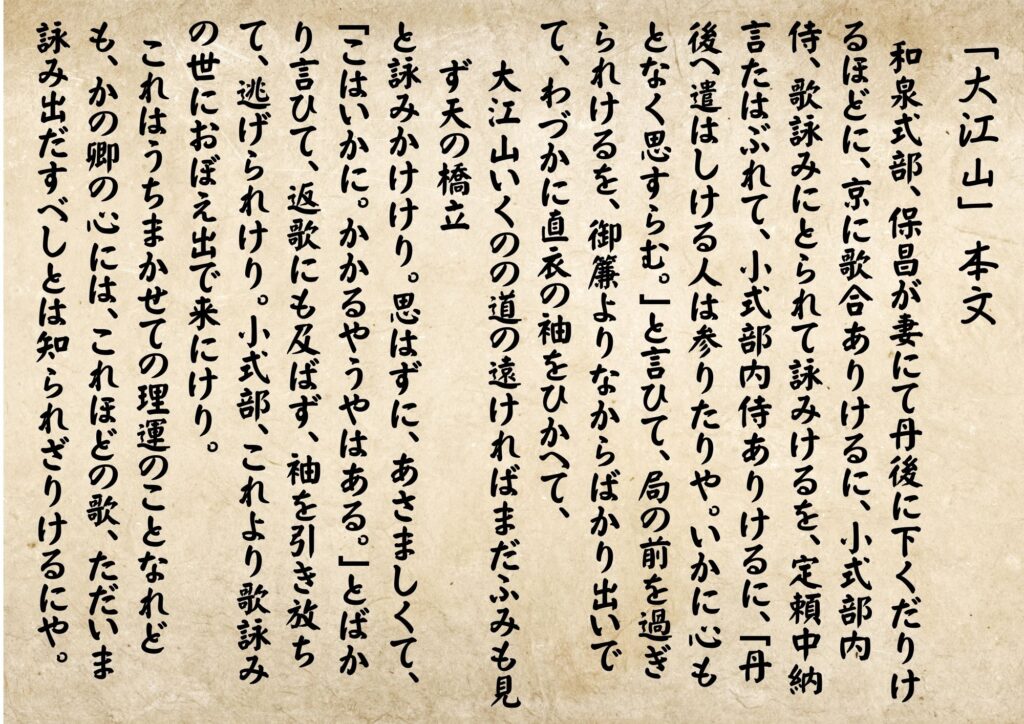 「大江山」本文
和泉式部、保昌が妻にて丹後に下くだりけ
るほどに、京に歌合ありけるに、小式部内
侍、歌詠みにとられて詠みけるを、定頼中納
言たはぶれて、小式部内侍ありけるに、「丹
後へ遣はしける人は参りたりや。いかに心も
となく思すらむ。」と言ひて、局の前を過ぎ
られけるを、御簾よりなからばかり出いで
て、わづかに直衣の袖をひかへて、
大江山いくのの道の遠ければまだふみも見
ず天の橋立
と詠みかけけり。思はずに、あさましくて、
「こはいかに。かかるやうやはある。」とばか
り言ひて、返歌にも及ばず、袖を引き放ち
て、逃げられけり。小式部、これより歌詠み
の世におぼえ出で来にけり。
これはうちまかせての理運のことなれど
も、かの卿の心には、これほどの歌、ただいま
詠み出だすべしとは知られざりけるにや。